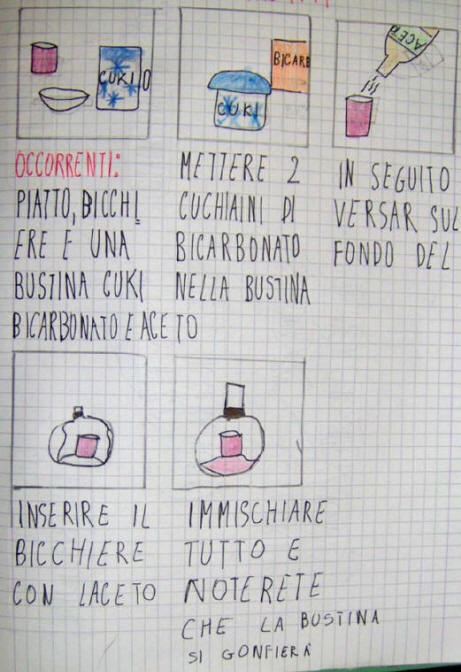 CUKI
OCCORRENTI:
PIATTO, BICCHI
ERE E UNA
BUSTINA CUKI
BICARBONATO E ACETO
BICARB
CUKI
METTERE 2
CUCHIAINI DI
BICARBONATO
NELLA BUSTINA
ACETO
IN SEGUITO
VERSAR SUL
FONDO DEL
INSERIRE IL
BICCHIERE
CON LACETO
IMMISCHIARE
TUTTO E
NOTERETE
CHE LA BUSTINA
SI GONFIERÀ